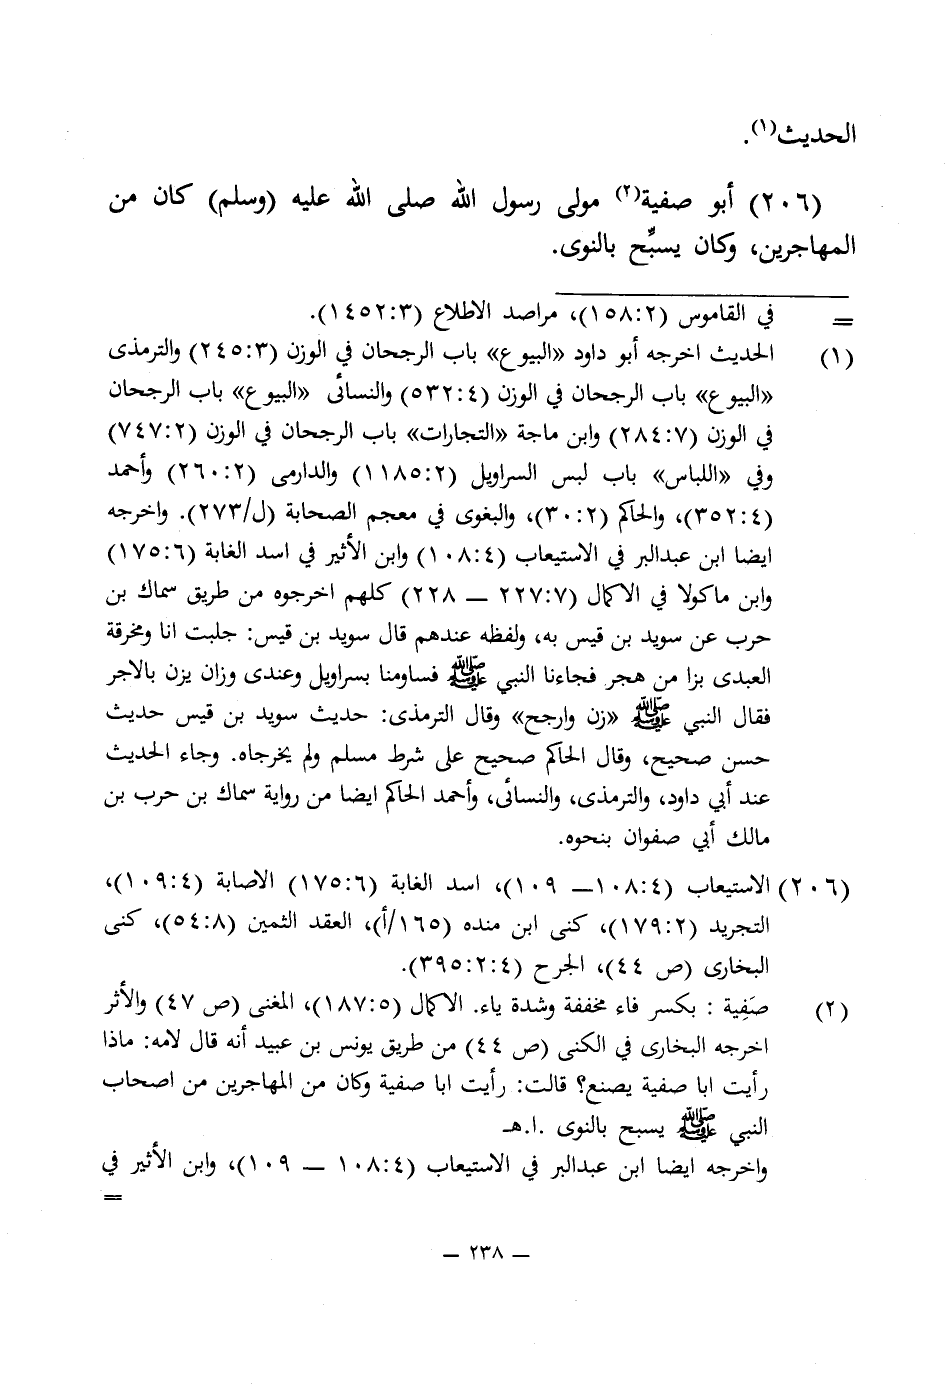 الحديث(١).
(٢٠٦) أبو صفية(٢) مولى رسول الله صلى الله عليه (وسلم) كان من
المهاجرين، وكان يسبِّح بالنوى.
= في القاموس (١٥٨:٢)، مراصد الاطلاع (١٤٥٢:٣).
(١) الحديث اخرجه أبو داود «البيوع» باب الرجحان في الوزن (٢٤٥:٣) والترمذى
«البيوع» باب الرجحان في الوزن (٥٣٢:٤) والنسائى «البيوع» باب الرجحان
في الوزن (٢٨٤:٧) وابن ماجة «التجارات» باب الرجحان في الوزن (٧٤٧:٢)
وفي «اللباس» باب لبس السراويل (١١٨٥:٢) والدارمى (٢٦٠:٢) وأحمد
(٣٥٢:٤)، والحاكم (٣٠:٢)، والبغوى في معجم الصحابة (ل/٢٧٣). واخرجه
ايضا ابن عبدالبر في الاستيعاب (١٠٨:٤) وابن الأثير في اسد الغابة (١٧٥:٦)
وابن ماكولا في الاكمال (٢٢٧:٧ — ٢٢٨) كلهم اخرجوه من طريق سماك بن
حرب عن سويد بن قيس به، ولفظه عندهم قال سويد بن قيس: جلبت انا ومخرقة
العبدى بزا من هجر فجاءنا النبي ﷺ فساومنا بسراويل وعندى وزان يزن بالاجر
فقال النبي ﷺ «زن وارجح» وقال الترمذى: حديث سويد بن قيس حديث
حسن صحيح، وقال الحاكم صحيح على شرط مسلم ولم يخرجاه. وجاء الحديث
عند أبي داود، والترمذى، والنسائى، وأحمد الحاكم ايضا من رواية سماك بن حرب بن
مالك أبي صفوان بنحوه.
(٢٠٦) الاستيعاب (١٠٨:٤— ١٠٩)، اسد الغابة (١٧٥:٦) الاصابة (١٠٩:٤)،
التجريد (١٧٩:٢)، كنى ابن منده (١٦٥/أ)، العقد الثمين (٥٤:٨)، كنى
البخارى (ص ٤٤)، الجرح (٣٩٥:٢:٤).
(٢) صَفِية : بكسر فاء مخففة وشدة ياء. الاكمال (١٨٧:٥)، المغنى (ص ٤٧) والأثر
اخرجه البخارى في الكنى (ص ٤٤) من طريق يونس بن عبيد أنه قال لامه: ماذا
رأيت ابا صفية يصنع؟ قالت: رأيت ابا صفية وكان من المهاجرين من اصحاب
النبي ﷺ يسبح بالنوى .ا.هـ
واخرجه ايضا ابن عبدالبر في الاستيعاب (١٠٨:٤ — ١٠٩)، وابن الأثير في
=
— ٢٣٨ —